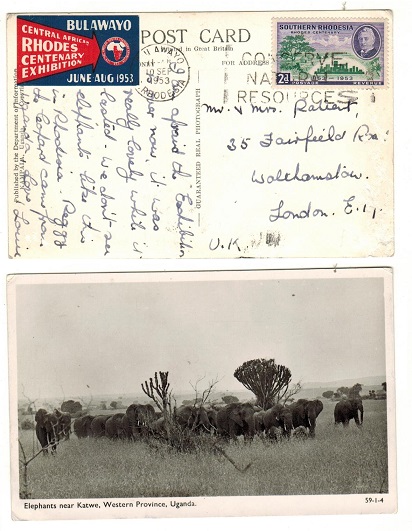 BULAWAYO
CENTRAL AFRICAN
RHODES
CENTENARY
EXHIBITION
JUNE AUG 1953
POST CARD
in Great Britain
FOR ADDRESS
SOUTHERN RHODESIA
RHODES CENTENARY
1853 - 1953
2d
POSTAGE
REVENUE
BULAWAYO
SEP
1953
RHODESIA
NAT
RESOURCES
Published by the Department of Information
GUARANTEED REAL PHOTOGRAPH
about the Exhibition
now, it was
really lovely while it
lasted. We don't see
elephants like this
in Rhodesia. Peggy
Love
Mr. & Mrs.
35 Fairfield Rd.
Walthamstow.
London. E.17.
U.K.
Elephants near Katwe, Western Province, Uganda.
59-1-4